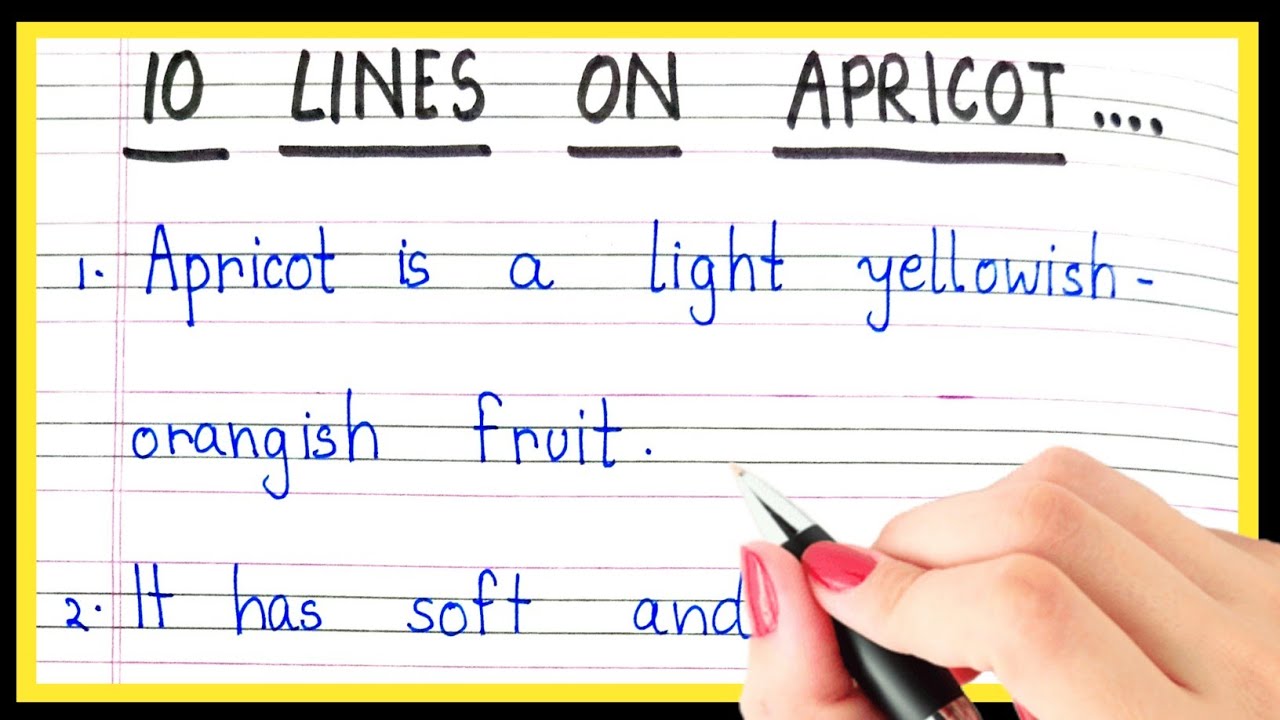 10 LINES ON APRICOT....
1. Apricot is a light yellowish-
orangish fruit.
2. It has soft and